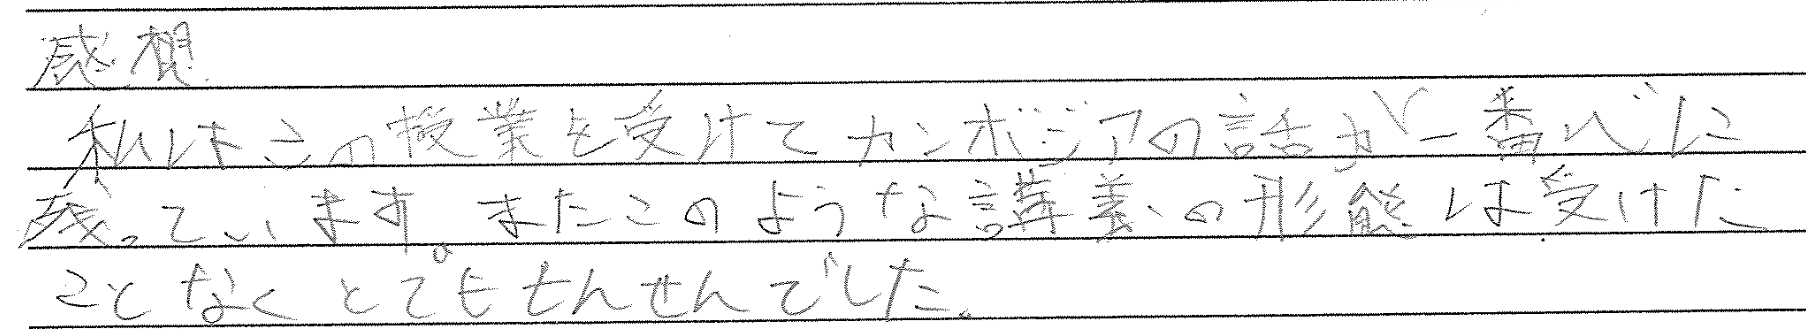 感想
私はこの授業を受けてカンボジアの話が一番心に
残っています。またこのような講義の形態は受けた
ことなくとてもせんせんでした。